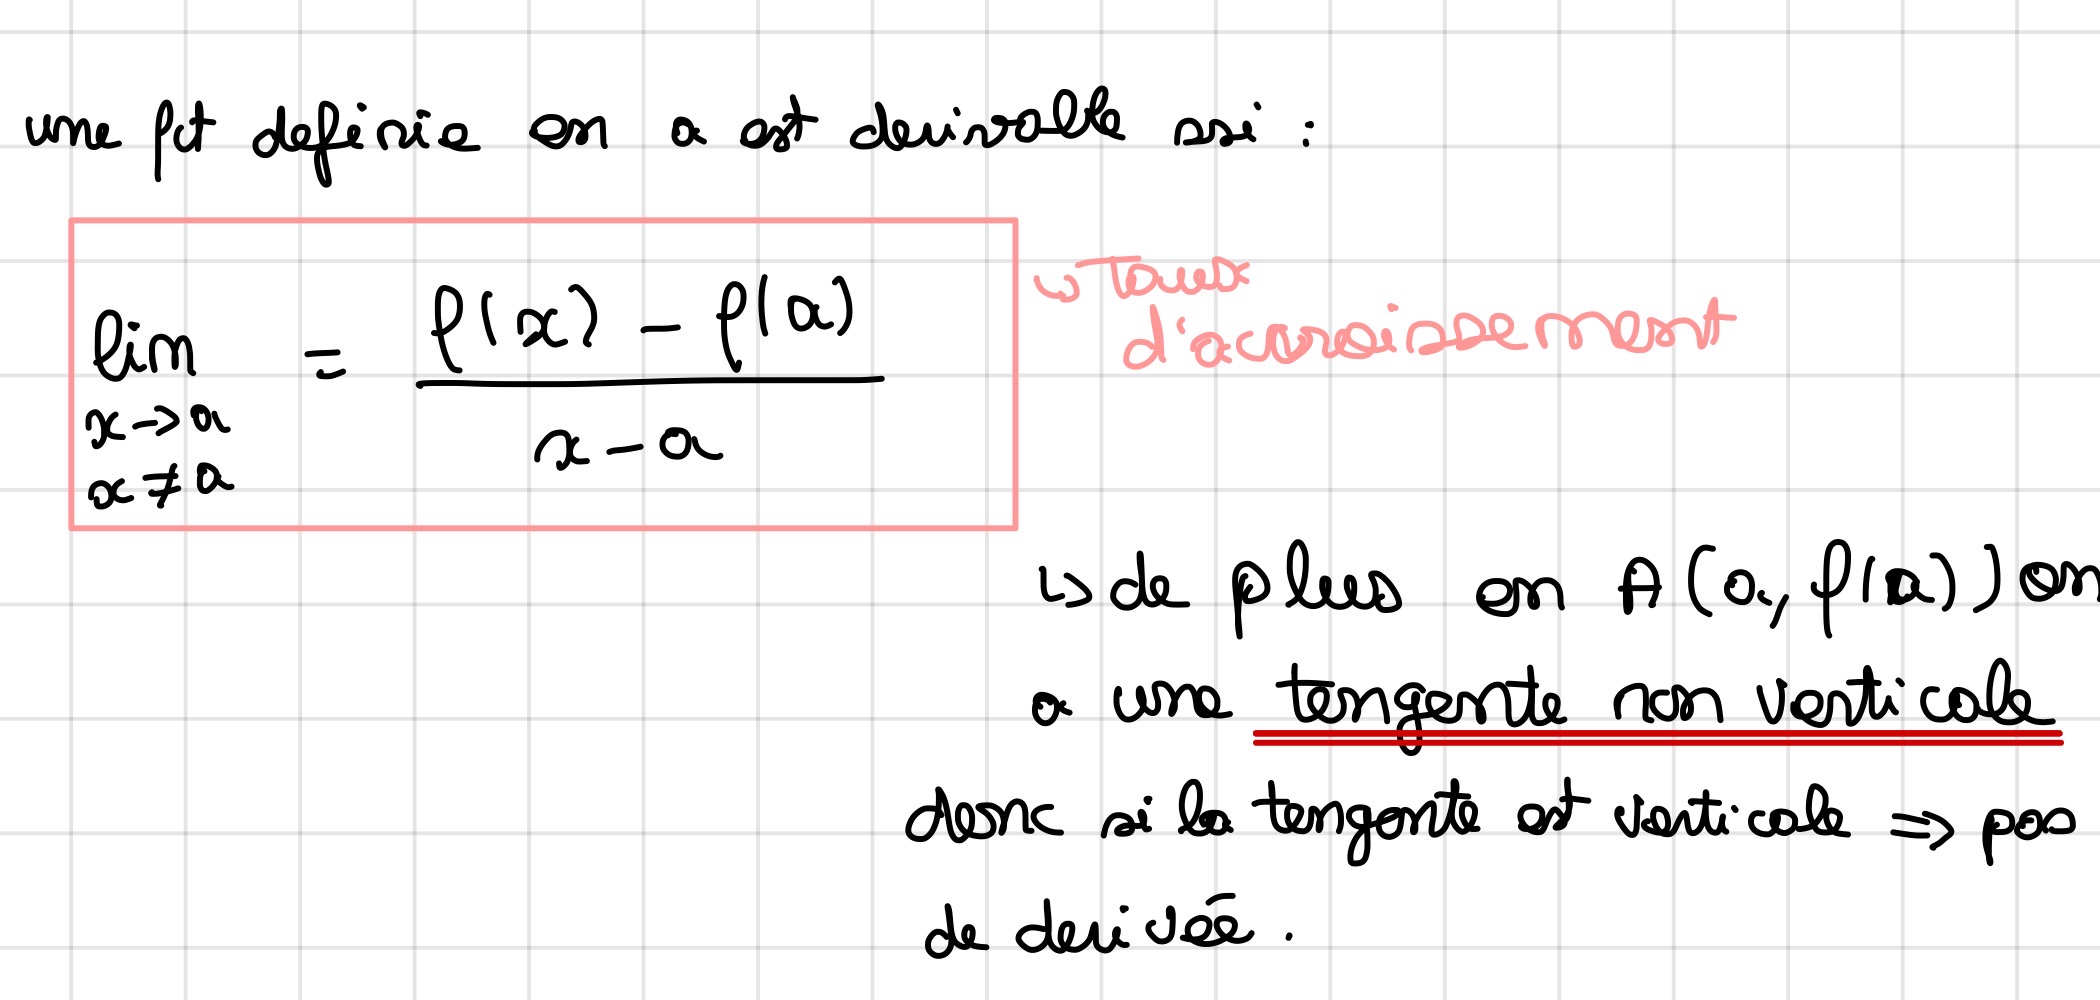 une fct definie en a est derivable ssi :
lim = f(x) - f(a)
x→a x - a
x≠a
↳ Taux
d'accroissement
↳ de plus en A(a, f(a)) on
a une tengente non verticale
donc si la tengente est verticale => pas
de derivée.